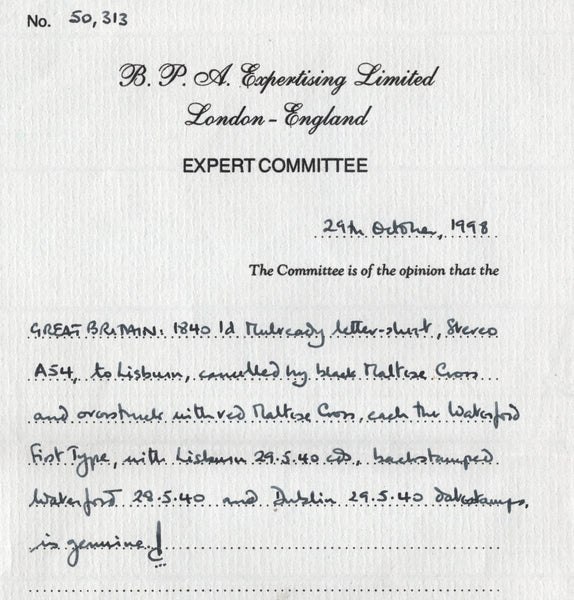 No. 50,313
B. P. A. Expertising Limited
London - England
EXPERT COMMITTEE
29th October, 1998
The Committee is of the opinion that the
GREAT BRITAIN: 1840 1d Mulready letter-sheet, Stereo
A54, to Lisburn, cancelled by black Maltese Cross
and overstruck with red Maltese Cross, each the Waterford
Fist Type, with Lisburn 29.5.40 cds, backstamped
Waterford 28.5.40 and Dublin 29.5.40 datestamps,
is genuine.